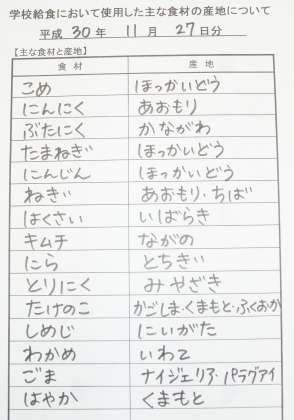 学校給食において使用した主な食材の産地について
平成 30 年 11 月 27 日分
【主な食材と産地】
食材 産地
こめ ほっかいどう
にんにく あおもり
ぶたにく かながわ
たまねぎ ほっかいどう
にんじん ほっかいどう
ねぎ あおもり・ちば
はくさい いばらき
キムチ ながの
にら とちぎ
とりにく みやざき
たけのこ かごしま・くまもと・ふくおか
しめじ にいがた
わかめ いわて
ごま ナイジェリア・パラグアイ
はやか くまもと